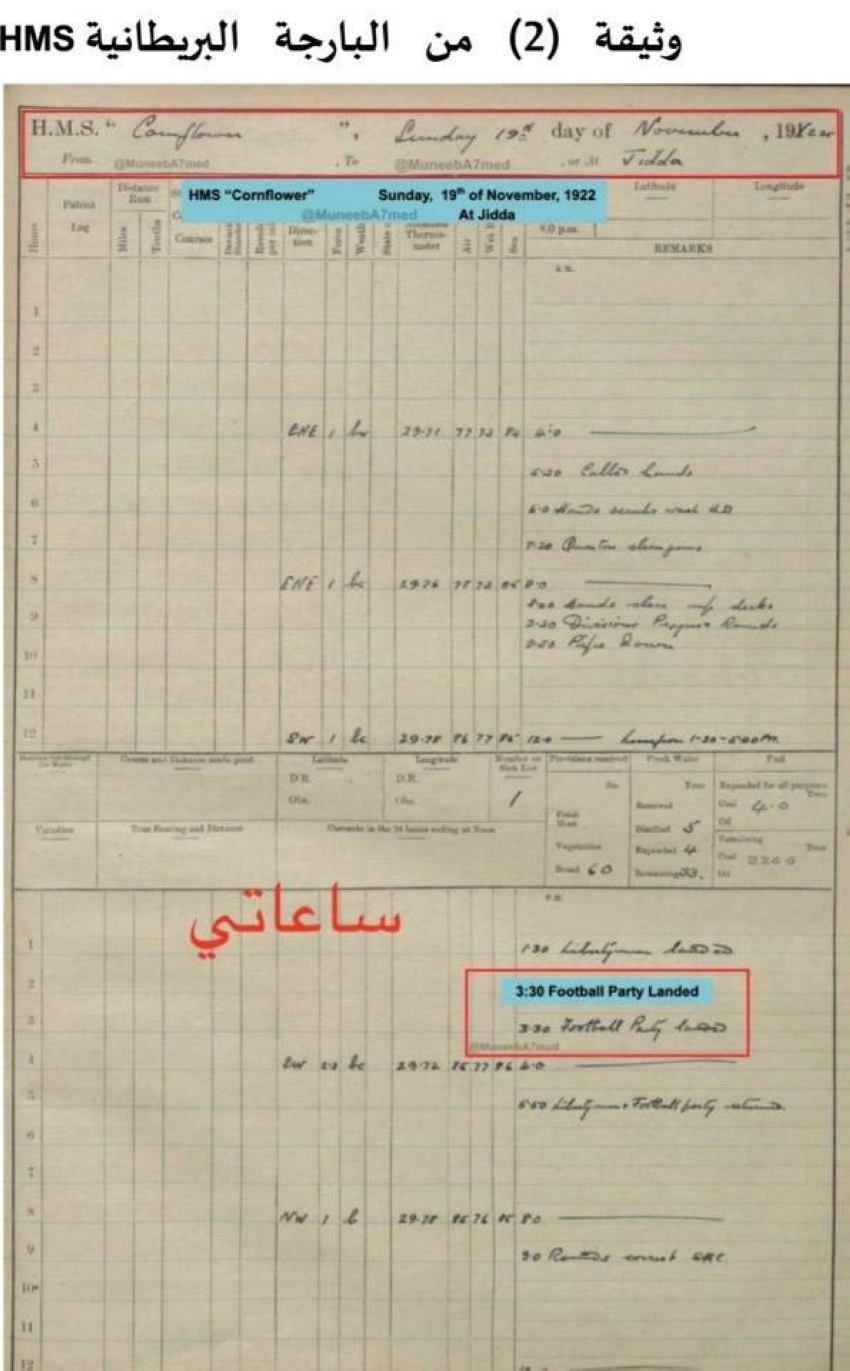 وثيقة (2) من البارجة البريطانية HMS
H.M.S. " Cornflower ", Sunday 19th day of November , 19
From @MuneebA7med , To @MuneebA7med , or At Jidda
HMS "Cornflower" Sunday, 19th of November, 1922
@MuneebA7med At Jidda
Hours Patent Log Distance Run Latitude Longitude
Miles Tenths Courses Direction Force State Thermometer Air Sea 8.0 p.m. REMARKS
A.M.
1
2
3
4 ENE 1 bc 29.71 77 72 84 4.0
5 5.20 Called hands
6
7
8 ENE 1 bc 29.76 78 72 85 8.0
9
9.30 Divisions Prayers Rounds
10 9.50 Pipe Down
11
12 SW 1 bc 29.78 86 77 85 12.0
Course and Distance made good Latitude Longitude Number on Sick List Provisions received Fresh Water Fuel
D.R. D.R. lbs. Tons Expended for all purposes Tons
Obs. Obs. 1 Fresh Meat Received Coal 4.0
Variation True Bearing and Distance Currents in the 24 hours ending at Noon Distilled 5 Oil
Vegetables Expended 4 Remaining Tons
Bread 60 Remaining 33. Coal
Oil
ساعاتي
P.M.
1 1.30 Libertymen landed
2 3:30 Football Party Landed
3 3.30 Football Party landed
@MuneebA7med
4 SW 2.3 bc 29.72 85 77 86 4.0
5 5.50 Libertymen + Football party returned.
6
7
8 NW 1 b 29.78 85 76 85 8.0
9 9.0 Rounds correct
10
11
12